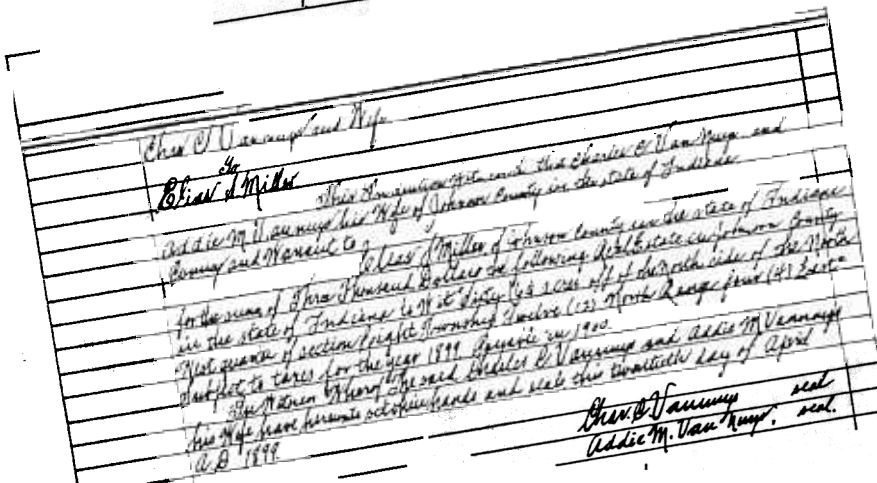 Chas C Vannuys and Wife
To
Elias S Miller
This Indenture Witnesseth that Charles C Van Nuys and
Addie M Vannuys his Wife of Johnson County in the state of Indiana
Convey and Warrant to
Elias S Miller of Johnson County in the state of Indiana
for the sum of Three Thousand Dollars the following Real Estate in Johnson County
in the state of Indiana to Wit Sixty acres off of the North side of the North
West quarter of section Eight Township Twelve (12) North Range four (4) East
Subject to taxes for the year 1899 Payable in 1900
In Witness Whereof The said Charles C Vannuys and Addie M Vannuys
his Wife have hereunto set their hands and seals this twentieth day of April
A.D 1899
Chas. C Vannuys seal
Addie M. Van Nuys. seal.